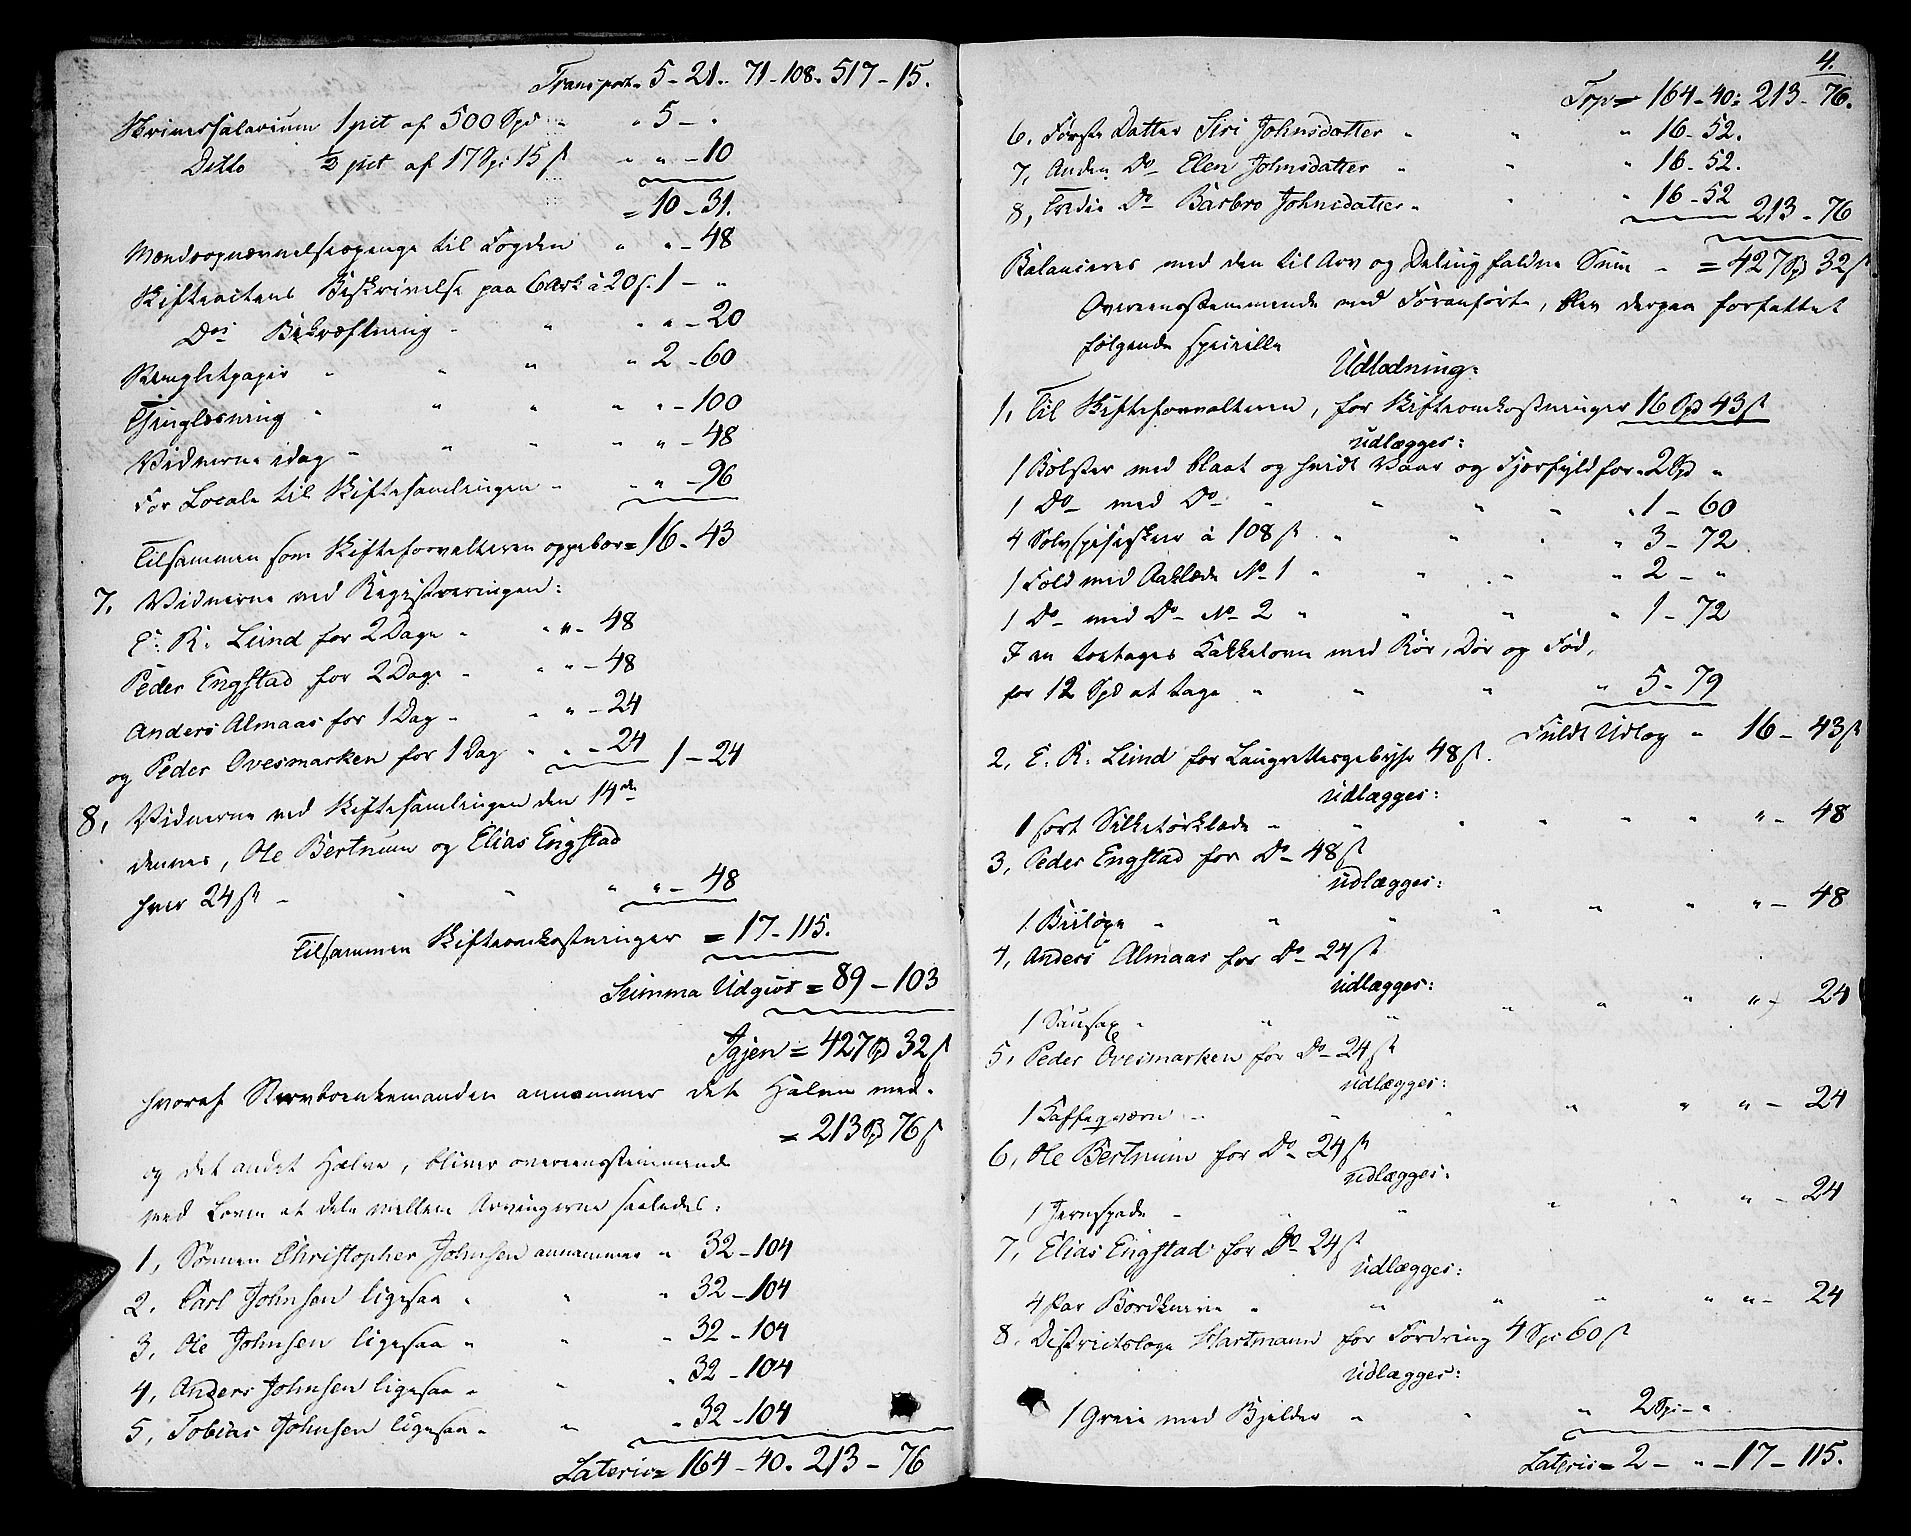 Transport = 5 - 21. 71 - 108. 517 - 15.
Skriversalarium 1 pct af 500 Spd " " 5 - "
Ditto ½ pct af 17 Spd 15 ß " " - 10
= 10 - 31.
Mændsopnævnelsespenge til Fogden " " - 48
Skifteactens Beskrivelse paa 6 Ark à 20 ß. 1 - "
Ds Bekræftning " " " - 20
Stempletpapir " " " " 2 - 60
Thinglæsning " " " " " - 100
Vidnerne idag " " " " - 48
For Locale til Skiftesamlingen " " " - 96
Tilsammen som Skifteforvalteren oppebær = 16 - 43
7, Vidnerne ved Registreringen:
E. R. Lund for 2 Dage " " " - 48
Peder Engstad for 2 Dage " " " - 48
Anders Almaas for 1 Dag " " " - 24
og Peder Ovesmarken for 1 Dag " " - 24 1 - 24
8, Vidnerne ved Skiftesamlingen den 14de
dennes, Ole Bertnum og Elias Engstad
hver 24 ß " " " " " - 48
Tilsammen Skifteomkostninger = 17 - 115.
Summa Udgivt = 89 - 103
Igjen = 427 Spd 32 ß
hvoraf Stervboenkemanden annammer det Halve med
= 213 Spd 76 ß
og det andet Halve, bliver overensstemmende
med Loven at dele mellem Arvingerne saaledes:
1, Sønnen Christopher Johnsen annammer " 32 - 104
2, Carl Johnsen ligesaa " " " 32 - 104
3, Ole Johnsen ligesaa " " " 32 - 104
4, Anders Johnsen ligesaa " " " 32 - 104
5, Tobias Johnsen ligesaa " " " 32 - 104
Lateris = 164 - 40. 213 - 76
4.
Tspt = 164 - 40: 213 - 76.
6, Første Datter Siri Johnsdatter " " " 16 - 52.
7, Anden Do Elen Johnsdatter " " " 16 - 52.
8, Tredie Do Barbro Johnsdatter " " " 16 - 52 213 - 76
Balancerer med den til Arv og Deling faldne Sum " = 427 Spd 32 ß.
Overensstemmende med Foranførte, blev derpaa forfattet
følgende specielle
Udlodning:
1, Til Skifteforvalteren, for Skifteomkostninger 16 Spd 43 ß
udlægges:
1 Bolster med blaat og hvidt Vaar og Fjærfyld for 2 Spd "
1 Do med Do " " " " " 1 - 60
4 Sølvspiseskeer à 108 ß " " " " 3 - 72
1 Fold med Aaklæde No 1 " " " " 2 - "
1 Do med Do No 2 " " " " 1 - 72
I en toetages Kakkelovn med Rør, Dør og Fod,
for 12 Spd at tage " " " " 5 - 79
Fuldt Udlæg " 16 - 43 ß
2, E. R. Lund for Laugrettesgebyhr 48 ß.
udlægges:
1 sort Silketørklæde " " " " " " " - 48
3, Peder Engstad for Do 48 ß
udlægges:
1 Biiløxe " " " " " " " - 48
4, Anders Almaas for Do 24 ß
udlægges:
1 Sausax " " " " " " " - 24
5, Peder Ovesmarken for Do 24 ß
udlægges:
1 Kaffeqværn " " " " " " - 24
6, Ole Bertnum for Do 24 ß
udlægges:
1 Jernspade " " " " " " - 24
7, Elias Engstad for Do 24 ß
udlægges:
4 Par Bordknive " " " " " " - 24
8, Districtslæge Hartmann for Fordring 4 Spd 60 ß
udlægges:
1 Greie med Bjelder " " " 2 Spd - "
Lateris = 2 - " - 17 - 115.